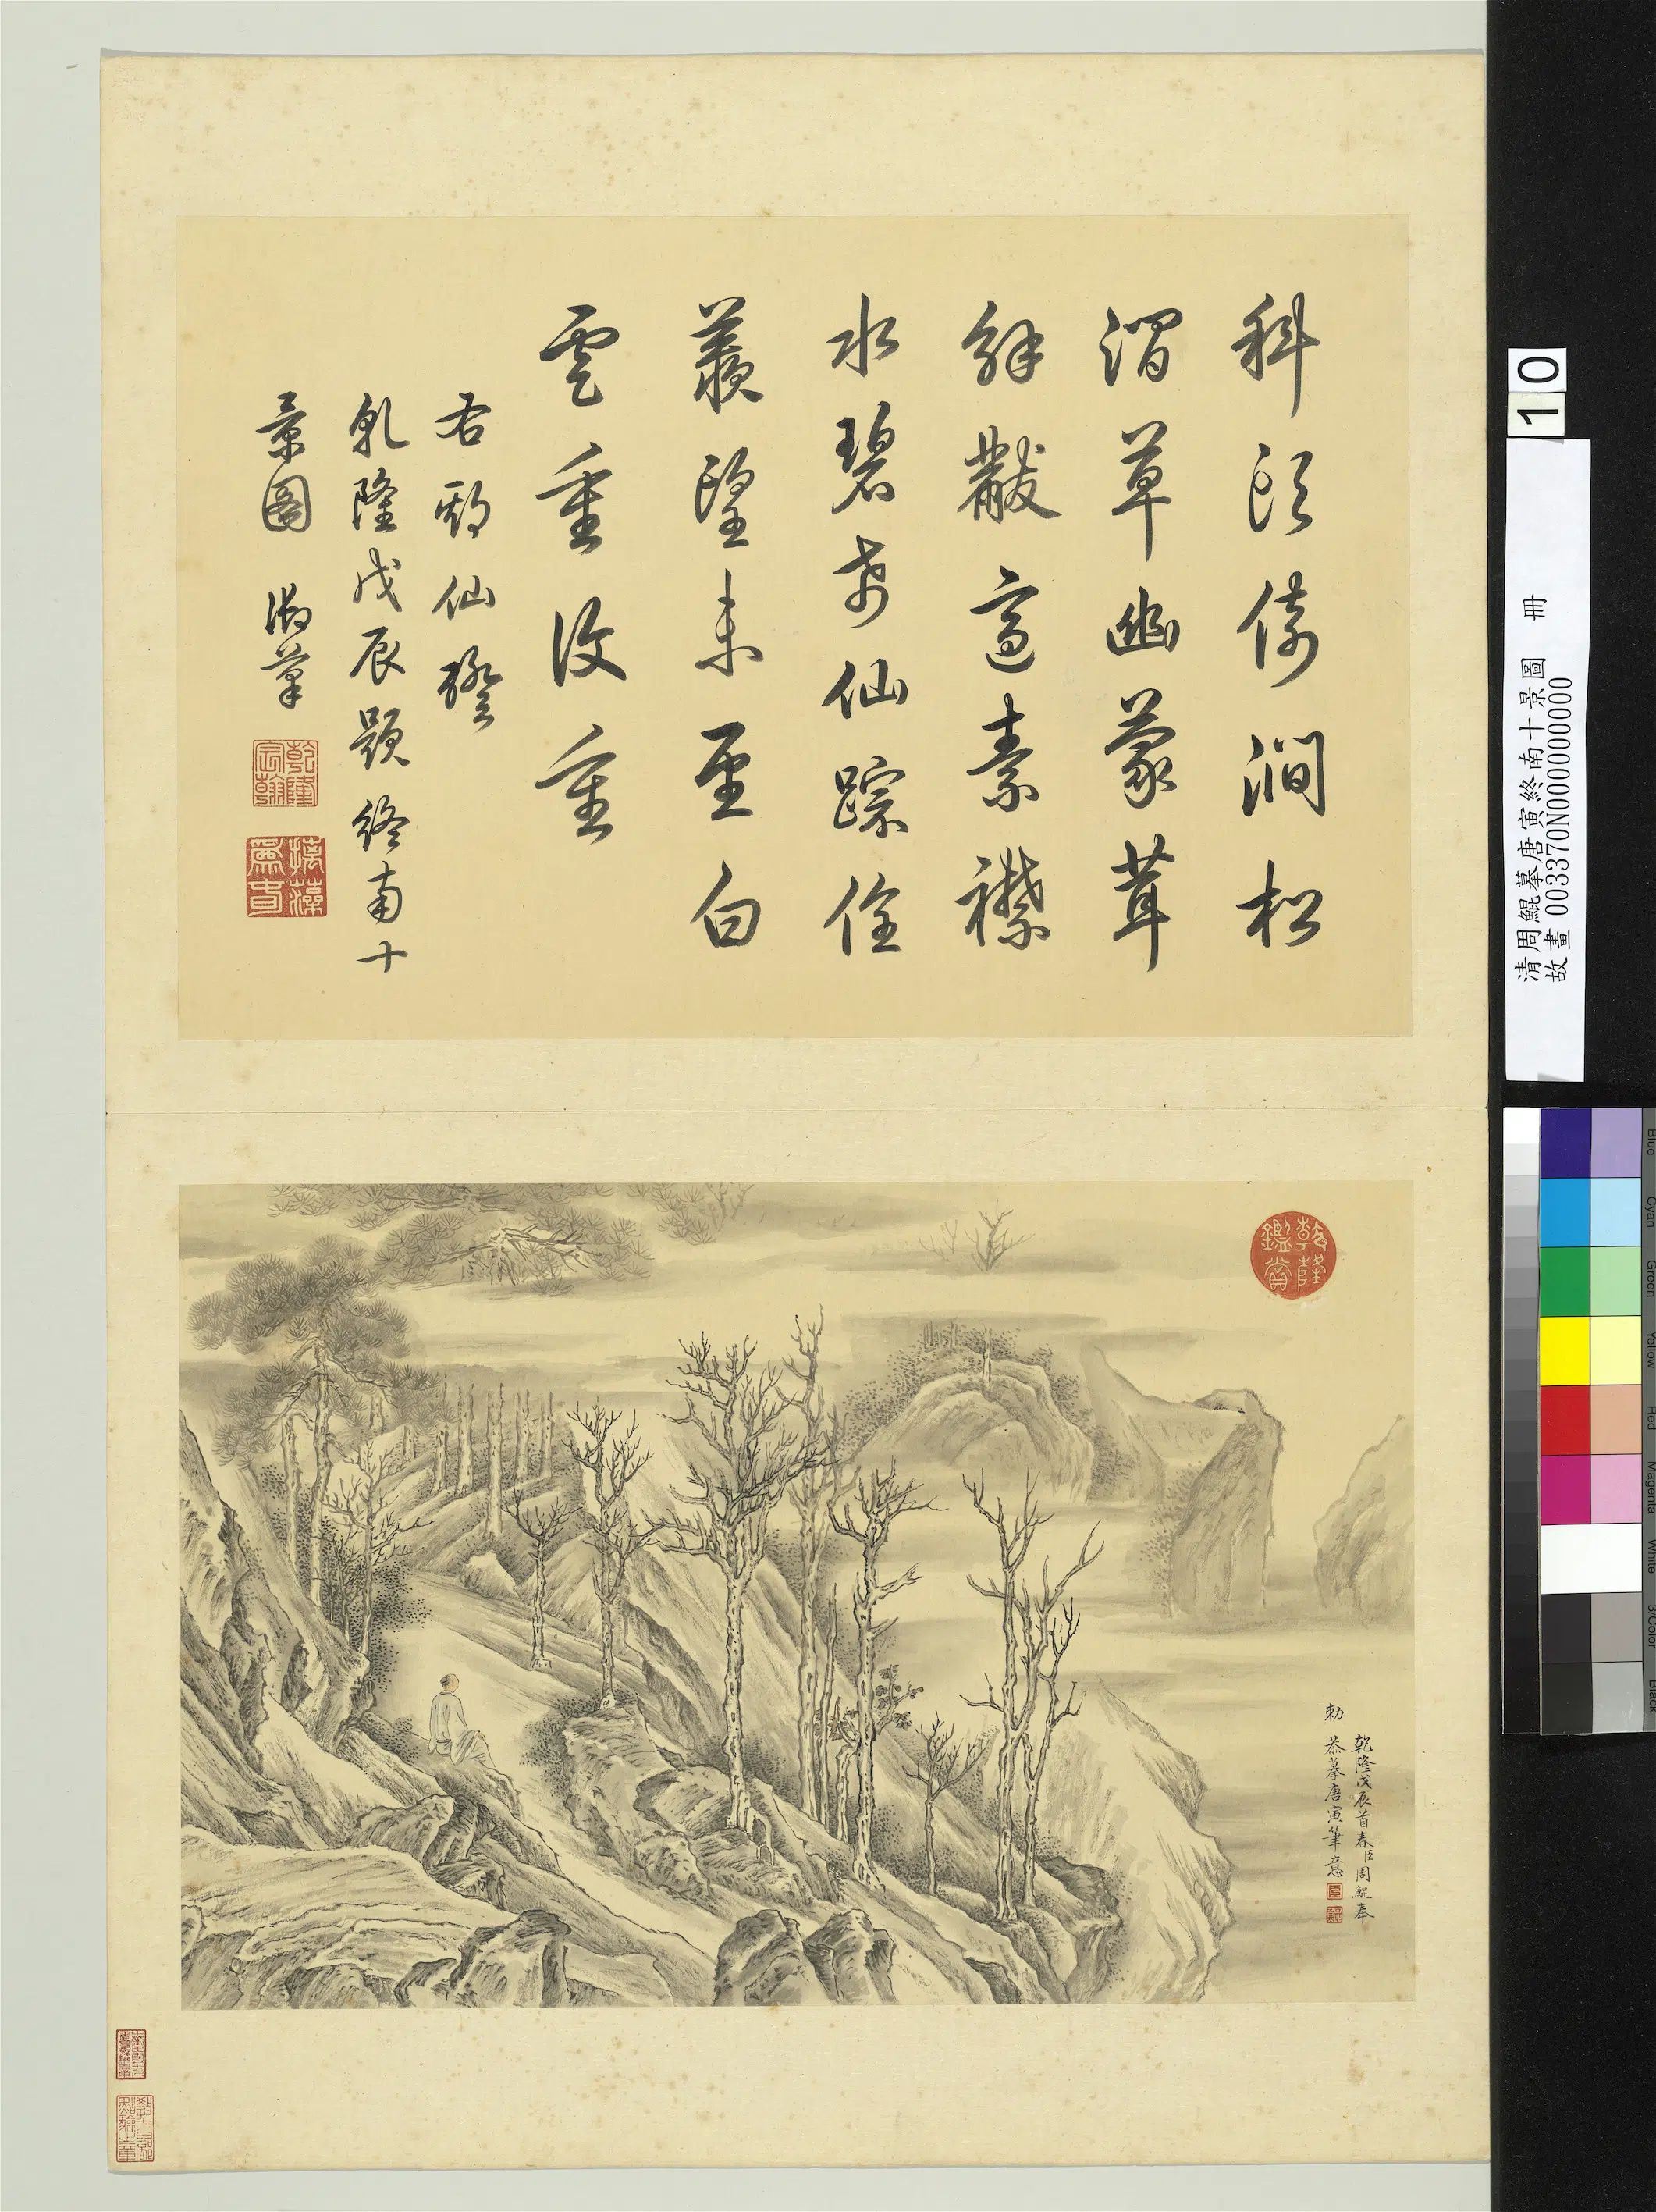 科頭倚澗松
澗草幽蒙茸
解黻適素襟
水碧希仙踪佺
羨望未至白
雲重復重
右期仙磴
乾隆戊辰題終南十
景圖 御筆
乾隆宸翰
摛藻為春
乾隆鑑賞
乾隆戊辰首春臣周鯤奉
勅 恭摹唐寅筆意
10
清周鯤摹唐寅終南十景圖 冊
故畫 003370N000000000
Blue
Cyan
Green
Yellow
Red
Magenta
White
3/Color
Black